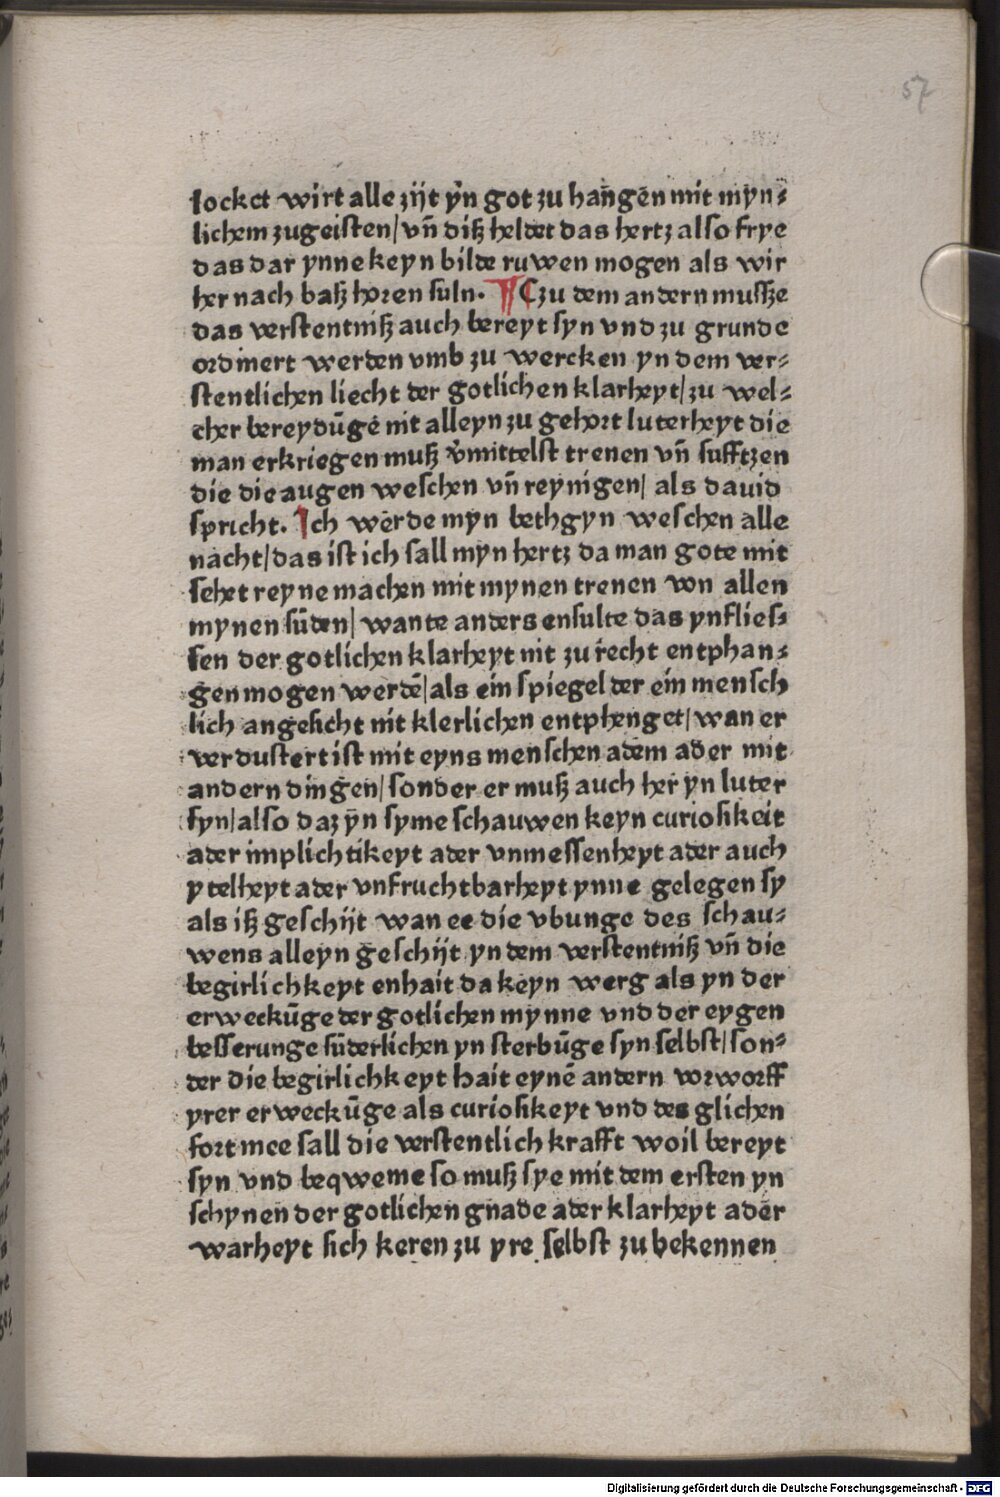 57
locket wirt alle zijt yn got zu hangen mit myn⸗
lichem zugeisten/ vn̄ diß heldet das hertz also frye
das dar ynne keyn bilde ruwen mogen als wir
her nach baß horen suln. ¶ Czu dem andern musße
das verstentniß auch bereyt syn vnd zu grunde
ordinert werden vmb zu wercken yn dem ver⸗
stentlichen liecht der gotlichen klarheyt/ zu wel⸗
cher bereydūge nit alleyn zu gehort luterheyt die
man erkriegen muß v̓mittelst trenen vn̄ sufftzen
die die augen weschen vn̄ reynigen/ als dauid
spricht. Ich werde myn bethgyn weschen alle
nacht/ das ist ich sall myn hertz da man gote mit
sehet reyne machen mit mynen trenen von allen
mynen sūden/ wante anders ensulte das ynflies⸗
sen der gotlichen klarheyt nit zu recht entphan⸗
gen mogen werdē/ als ein spiegel der ein mensch
lich angesicht nit klerlichen entphenget/ wan er
verdustert ist mit eyns menschen adem ader mit
andern dingen/ sonder er muß auch her yn luter
syn/ also daz yn syme schauwen keyn curiosikeit
ader implichtikeyt ader vnmessenheyt ader auch
ytelheyt ader vnfruchtbarheyt ynne gelegen sy
als iß geschijt wan ee die vbunge des schau⸗
wens alleyn geschijt yn dem verstentniß vn̄ die
begirlichkeyt enhait da keyn werg als yn der
erweckūge der gotlichen mynne vnd der eygen
besserunge sūderlichen yn sterbūge syn selbst/ son⸗
der die begirlichkeyt hait eynē andern vorworff
yrer erweckūge als curiosikeyt vnd des glichen
fort mee sall die verstentlich krafft woil bereyt
syn vnd beqweme so muß sye mit dem ersten yn
schynen der gotlichen gnade ader klarheyt ader
warheyt sich keren zu yre selbst zu bekennen
Digitalisierung gefördert durch die Deutsche Forschungsgemeinschaft - DFG